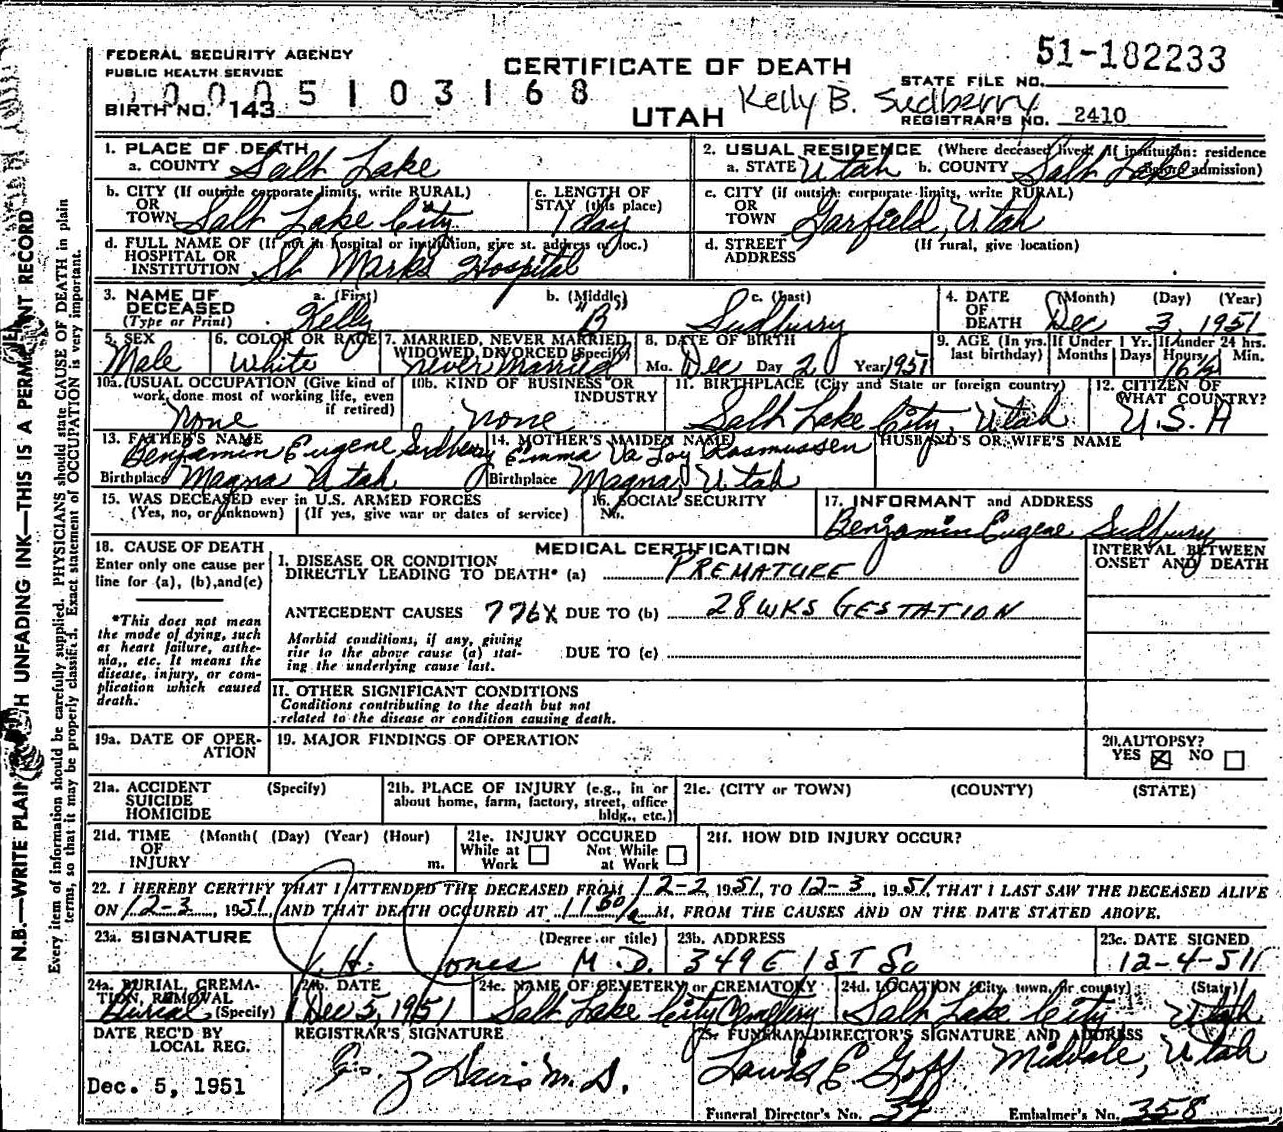 51-182233
FEDERAL SECURITY AGENCY
PUBLIC HEALTH SERVICE
CERTIFICATE OF DEATH
STATE FILE NO.
0005103168
BIRTH NO. 143
UTAH
Kelly B. Sudberry
REGISTRAR'S NO. 2410
1. PLACE OF DEATH
a. COUNTY Salt Lake
2. USUAL RESIDENCE (Where deceased lived. If institution: residence before admission)
a. STATE Utah b. COUNTY Salt Lake
b. CITY (If outside corporate limits, write RURAL) OR TOWN Salt Lake City
c. LENGTH OF STAY (this place) 1 day
c. CITY (if outside corporate limits, write RURAL) OR TOWN Garfield, Utah
d. FULL NAME OF (If not in hospital or institution, give st. address or loc.) HOSPITAL OR INSTITUTION St Marks Hospital
d. STREET ADDRESS (If rural, give location)
3. NAME OF DECEASED (Type or Print) a. (First) Kelly b. (Middle) "B" c. (Last) Sudburry
4. DATE OF DEATH (Month) (Day) (Year) Dec 3, 1951
5. SEX Male
6. COLOR OR RACE White
7. MARRIED, NEVER MARRIED, WIDOWED, DIVORCED (Specify) Never Married
8. DATE OF BIRTH Mo. Dec Day 2 Year 1951
9. AGE (In yrs. last birthday) If Under 1 Yr. Months Days If under 24 hrs. Hours 16½ Min.
10a. (USUAL OCCUPATION (Give kind of work done most of working life, even if retired) None
10b. KIND OF BUSINESS OR INDUSTRY None
11. BIRTHPLACE (City and State or foreign country) Salt Lake City, Utah
12. CITIZEN OF WHAT COUNTRY? U.S.A
13. FATHER'S NAME Benjamin Eugene Sudbery
Birthplace Magna Utah
14. MOTHER'S MAIDEN NAME Emma Va Loy Rasmussen
Birthplace Magna, Utah
HUSBAND'S OR WIFE'S NAME
15. WAS DECEASED ever in U.S. ARMED FORCES
(Yes, no, or unknown) (If yes, give war or dates of service)
16. SOCIAL SECURITY No.
17. INFORMANT and ADDRESS
Benjamin Eugene Sudbury
18. CAUSE OF DEATH
Enter only one cause per line for (a), (b), and (c)
*This does not mean the mode of dying, such as heart failure, asthenia,, etc. It means the disease, injury, or complication which caused death.
MEDICAL CERTIFICATION
INTERVAL BETWEEN ONSET AND DEATH
I. DISEASE OR CONDITION
DIRECTLY LEADING TO DEATH* (a) PREMATURE
ANTECEDENT CAUSES 776X DUE TO (b) 28 WKS GESTATION
Morbid conditions, if any, giving rise to the above cause (a) stating the underlying cause last.
DUE TO (c)
II. OTHER SIGNIFICANT CONDITIONS
Conditions contributing to the death but not related to the disease or condition causing death.
19a. DATE OF OPERATION
19. MAJOR FINDINGS OF OPERATION
20. AUTOPSY?
YES ☒ NO ☐
21a. ACCIDENT SUICIDE HOMICIDE (Specify)
21b. PLACE OF INJURY (e.g., in or about home, farm, factory, street, office bldg., etc.)
21c. (CITY or TOWN) (COUNTY) (STATE)
21d. TIME OF INJURY (Month( (Day) (Year) (Hour) m.
21e. INJURY OCCURED While at Work ☐ Not While at Work ☐
21f. HOW DID INJURY OCCUR?
22. I HEREBY CERTIFY THAT I ATTENDED THE DECEASED FROM 12-2, 1951, TO 12-3, 1951, THAT I LAST SAW THE DECEASED ALIVE
ON 12-3, 1951, AND THAT DEATH OCCURED AT 1150 a M, FROM THE CAUSES AND ON THE DATE STATED ABOVE.
23a. SIGNATURE (Degree or title) Jones M.D.
23b. ADDRESS 349 E 1ST So
23c. DATE SIGNED 12-4-51
24a. BURIAL, CREMATION, REMOVAL (Specify) Burial
24b. DATE Dec 5, 1951
24c. NAME OF CEMETERY or CREMATORY Salt Lake City Cemetery
24d. LOCATION (City, town, or county) (State) Salt Lake City Utah
DATE REC'D BY LOCAL REG.
Dec. 5, 1951
REGISTRAR'S SIGNATURE
Davis M.D.
25. FUNERAL DIRECTOR'S SIGNATURE AND ADDRESS
Lewis E Goff Midvale, Utah
Funeral Director's No. 32 Embalmer's No. 358
N.B.—WRITE PLAINLY WITH UNFADING INK—THIS IS A PERMANENT RECORD
Every item of information should be carefully supplied. PHYSICIANS should state CAUSE OF DEATH in plain
terms, so that it may be properly classified. Exact statement of OCCUPATION is very important.